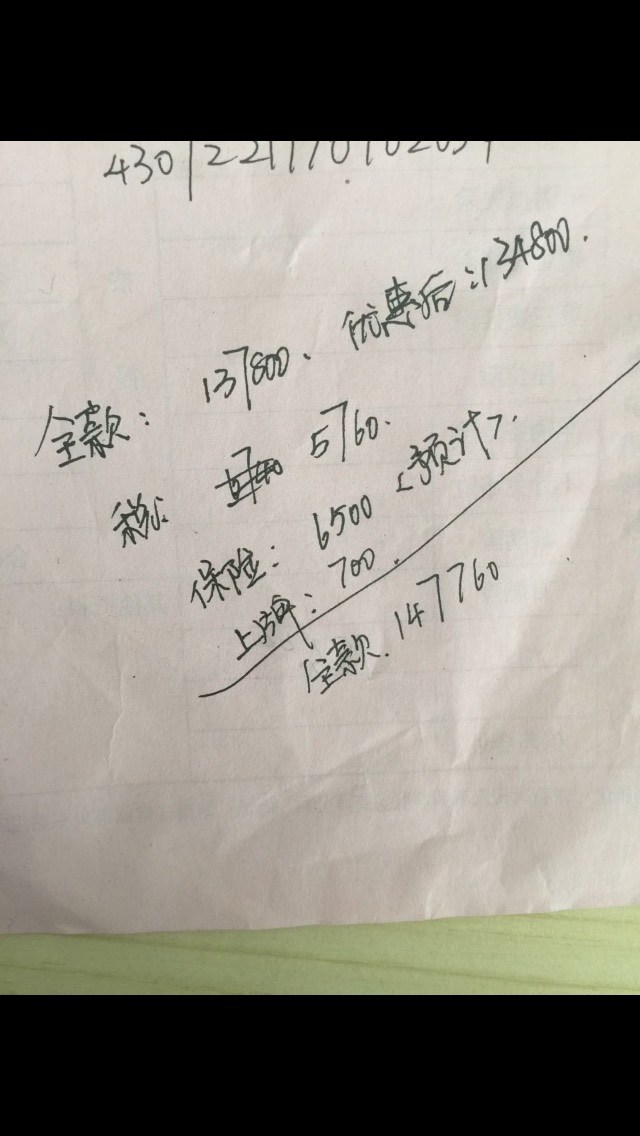 全款: 137800、优惠后:134800.
税: 5760.
保险: 6500 <预计>.
上牌: 700.
全款.147760